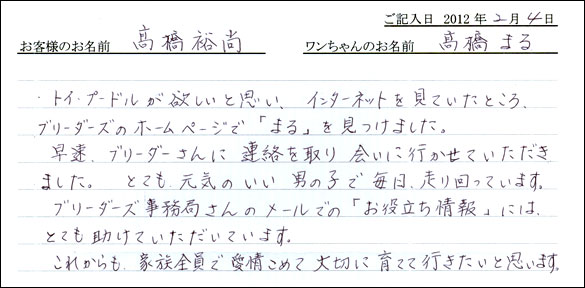 ご記入日 2012年2月4日
お客様のお名前 髙橋裕尚 ワンちゃんのお名前 髙橋まる
・トイ・プードルが欲しいと思い、インターネットを見ていたところ、
ブリーダーズのホームページで「まる」を見つけました。
早速、ブリーダーさんに連絡を取り会いに行かせていただき
ました。とても、元気のいい男の子で毎日、走り回っています。
ブリーダーズ事務局さんのメールでの「お役立ち情報」には、
とても助けていただいています。
これからも、家族全員で愛情こめて大切に育てて行きたいと思います。